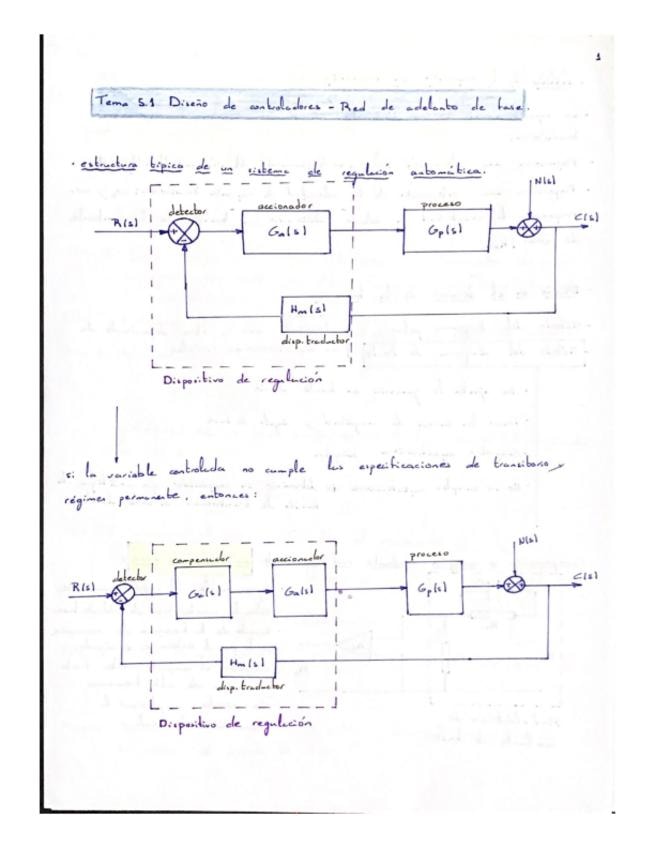 1
Tema 5.1 Diseño de controladores - Red de adelanto de fase.
· estructura típica de un sistema de regulación automática.
N(s)
detector accionador proceso
R(s) + - Ga(s) Gp(s) + C(s)
Hm(s)
disp. traductor
Dispositivo de regulación
si la variable controlada no cumple las especificaciones de transitorio y
régimen permanente, entonces:
N(s)
compensador accionador proceso
R(s) detector + - Ga(s) Gp(s) + C(s)
Hm(s)
disp. traductor
Dispositivo de regulación